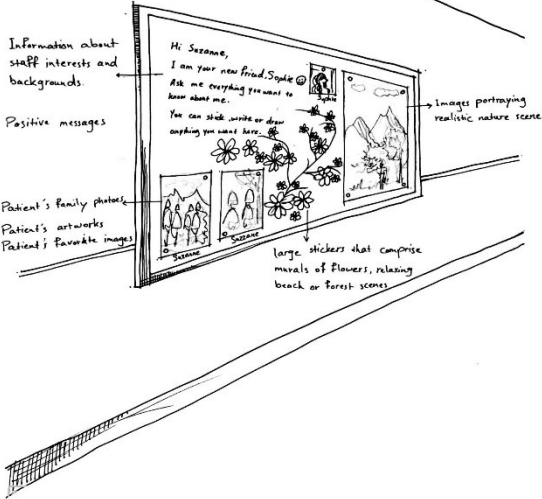 Information about
staff interests and
backgrounds.
Positive messages
Patient's family photoes
Patient's artworks
Patient's favorite images
Hi Suzanne,
I am your new friend, Sophie
Ask me everything you want to
know about me.
You can stick, write or draw
anything you want here.
Sophie
Suzanne
Suzzane
Images portraying
realistic nature scene
large stickers that comprise
murals of flowers, relaxing
beach or forest scenes